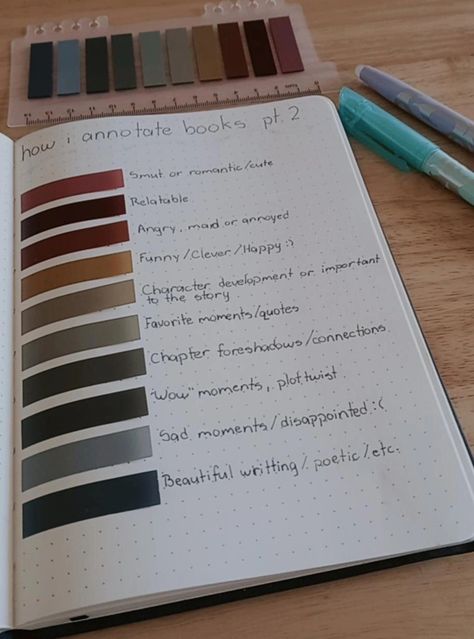 how i annotate books pt. 2
Smut or romantic/cute
Relatable
Angry, maid or annoyed
Funny/Clever/Happy :)
Character development or important
to the story
Favorite moments/quotes
Chapter foreshadows/connections
"Wow" moments, plot twist
Sad moments/disappointed :(
Beautiful writting/poetic/etc.